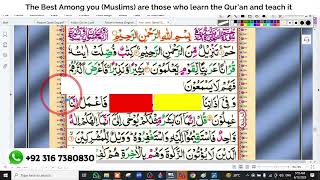 The Best Among you (Muslims) are those who learn the Qur'an and teach it
بِسْمِ اللهِ الرَّحْمٰنِ الرَّحِيْمِ
حٰمٓ تَنْزِيْلٌ مِّنَ الرَّحْمٰنِ الرَّحِيْمِ كِتٰبٌ فُصِّلَتْ اٰيٰتُهٗ
قُرْاٰنًا عَرَبِيًّا لِّقَوْمٍ يَّعْلَمُوْنَ بَشِيْرًا وَّنَذِيْرًا فَاَعْرَضَ اَكْثَرُهُمْ
فَهُمْ لَا يَسْمَعُوْنَ
وَفِيْ اٰذَانِنَا فَاعْمَلْ اِنَّنَا
عٰمِلُوْنَ قُلْ اِنَّمَا اَنَا بَشَرٌ مِّثْلُكُمْ يُوْحٰى اِلَيَّ اَنَّمَا اِلٰهُكُمْ اِلٰهٌ
وَّاحِدٌ فَاسْتَقِيْمُوْا اِلَيْهِ وَاسْتَغْفِرُوْهُ وَوَيْلٌ لِّلْمُشْرِكِيْنَ
الَّذِيْنَ لَا يُؤْتُوْنَ الزَّكٰوةَ وَهُمْ بِالْاٰخِرَةِ هُمْ
+92 316 7380830